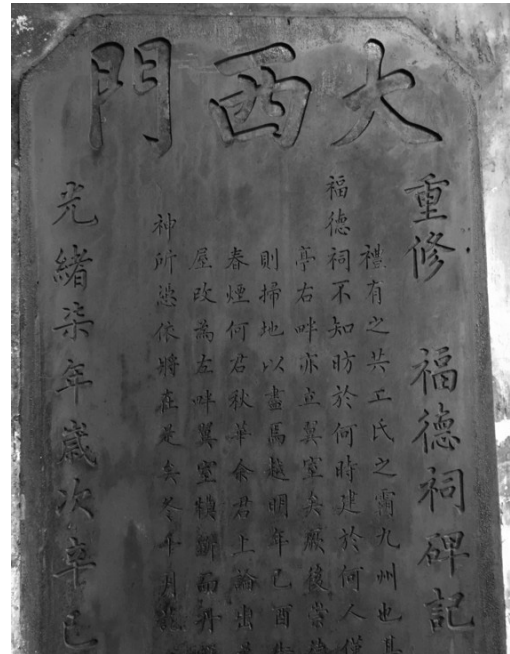 大西門
重修　福德祠碑記
禮有之共工氏之霸九州也其
福德祠不知昉於何時建於何人僅
亭右畔亦立翼室矣厥後嘗
則掃地以盡焉越明年己酉
春煙何君秋華余君上論出
屋改為左畔翼室樸斲而丹
神所憑依將在是矣冬十月
光緒柒年歲次辛巳